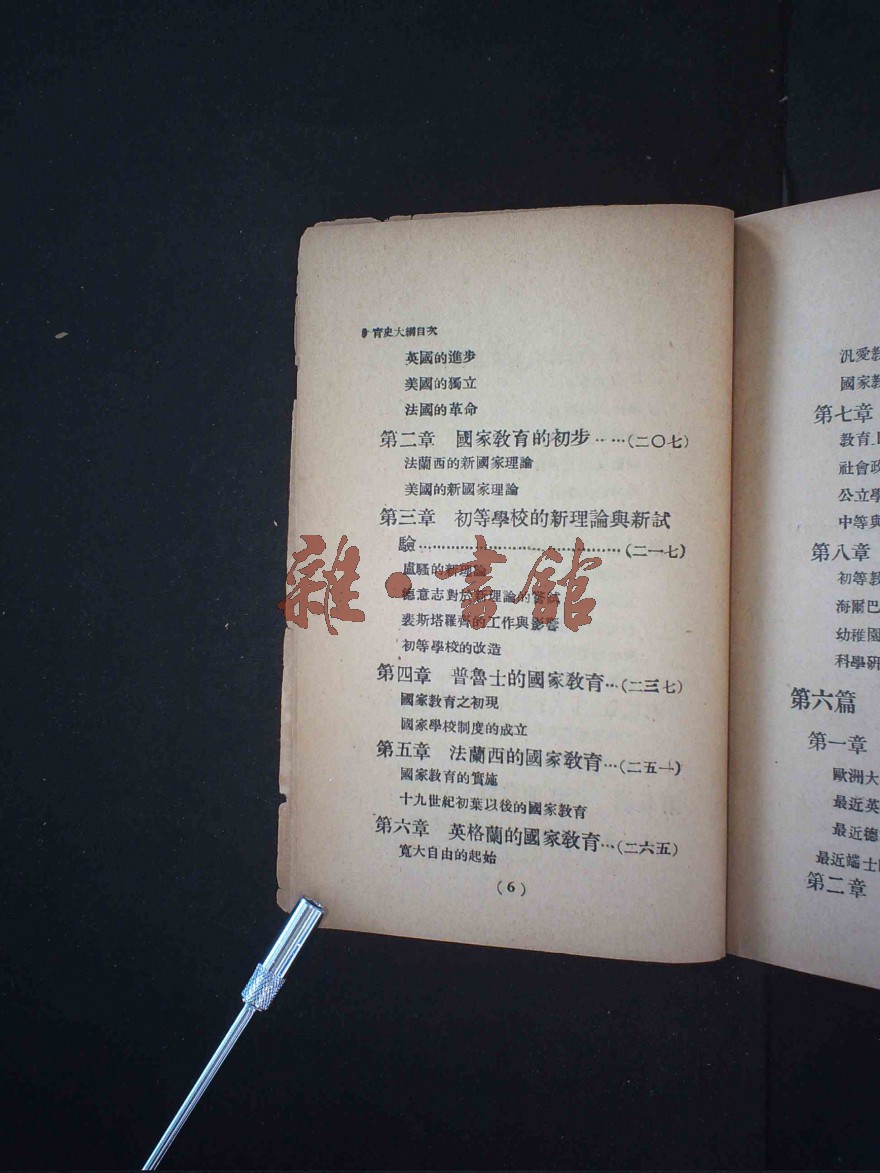 育史大綱目次
英國的進步
美國的獨立
法國的革命
第二章 國家敎育的初步……(二〇七)
法蘭西的新國家理論
美國的新國家理論
第三章 初等學校的新理論與新試
驗……………………………(二一七)
盧騷的新理論
德意志對於新理論的嘗試
裴斯塔羅齊的工作與影響
初等學校的改造
第四章 普魯士的國家敎育…(二三七)
國家敎育之初現
國家學校制度的成立
第五章 法蘭西的國家敎育…(二五一)
國家敎育的實施
十九世紀初葉以後的國家敎育
第六章 英格蘭的國家敎育…(二六五)
寬大自由的起始
(6)
汎愛
國家
第七章
敎育
社會政
公立學
中等與
第八章
初等敎
海爾巴
幼稚園
科學研
第六篇
第一章
歐洲大
最近英
最近德
最近端士
第二章
雜·書館